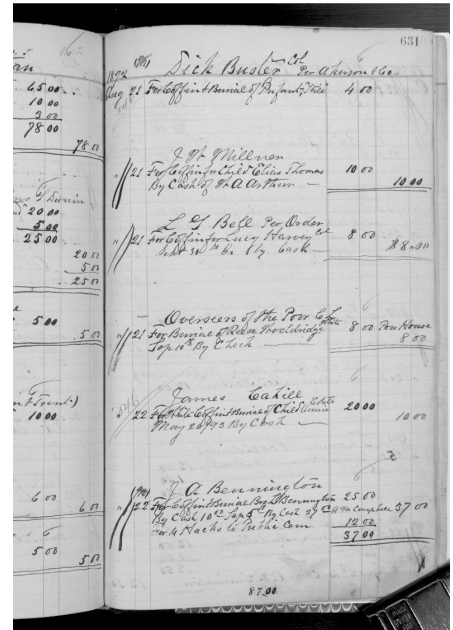 631
1892
Dick Buster Col Per
Aug 21 For Coffin & Burial of Infant 4 00
J W Millner
" 21 For Coffin for Child Elias Thomas 10 00
By Cash of W A Arthur — 10 00
L G Bell Per Order
" 21 For Coffin for Lucy Harvey Col 8 00
by Cash —
Overseers of the Poor
" 21 For Burial of Rose Wooldridge 8 00 Poor House
Sep 10th By Check 8.00
James Cahill
22 For White Coffin & Burial of Child 20 00
May 20/93 By Cash 10 00
J A Bennington
" 22 For Coffin & Burial Bennington 25 00
By Cash 10 00 Sep 5th By Cash 27 00 37 00
For 4 Hacks to Cem 12 00
37 00
87.00
65 00
10 00
3 00
78 00
78 00
20 00
5 00
25 00
20 00
5 00
25 00
5 00
5 00
10 00
6 00
6 00
5 00
5 00